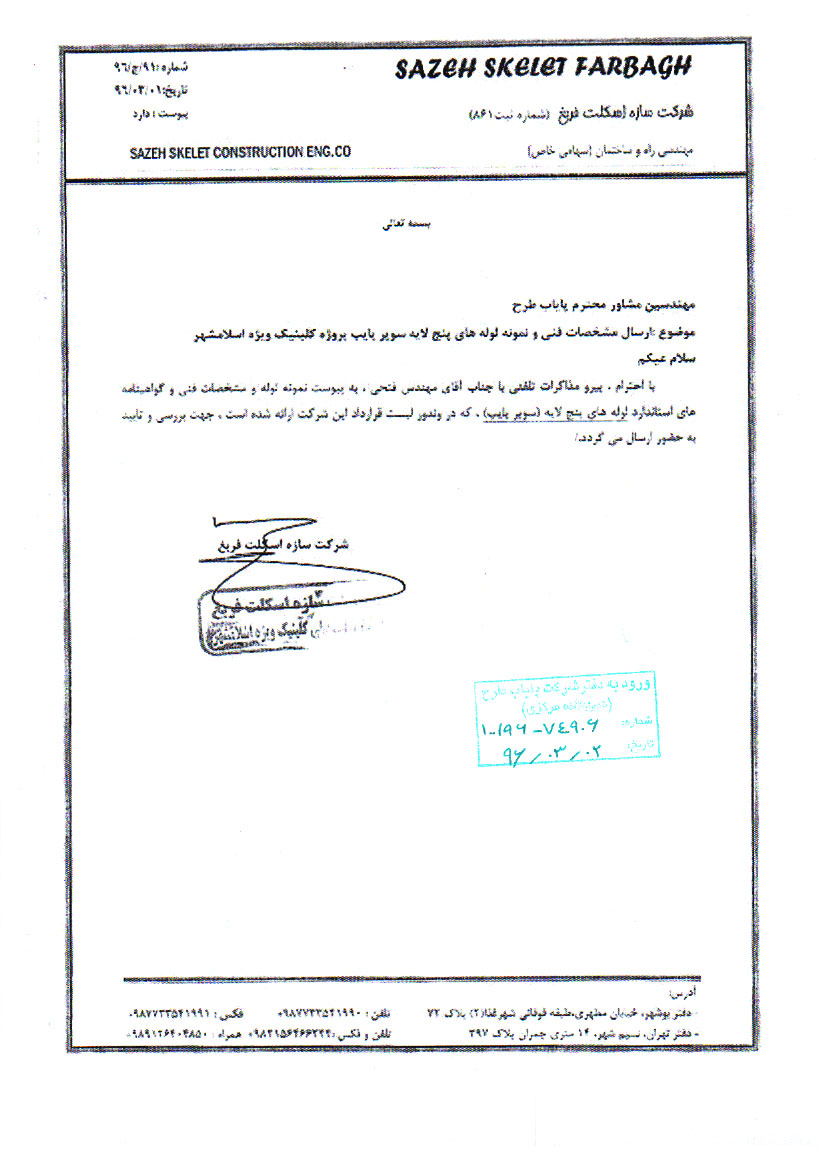 SAZEH SKELET FARBAGH
شماره :۹۱/ج/۹۶
تاریخ:۹۶/۰۳/۰۱
شرکت سازه اسکلت فربغ (شماره ثبت۸۶۱)
پیوست : دارد
مهندسی راه و ساختمان (سهامی خاص)
SAZEH SKELET CONSTRUCTION ENG.CO
بسمه تعالی
مهندسین مشاور محترم پایاب طرح
موضوع :ارسال مشخصات فنی و نمونه لوله های پنج لایه سوپر پایپ پروژه کلینیک ویژه اسلامشهر
سلام علیکم
با احترام ، پیرو مذاکرات تلفنی با جناب آقای مهندس فتحی ، به پیوست نمونه لوله و مشخصات فنی و گواهینامه
های استاندارد لوله های پنج لایه (سوپر پایپ) ، که در وندور لیست قرارداد این شرکت ارائه شده است ، جهت بررسی و تایید
به حضور ارسال می گردد./
شرکت سازه اسکلت فربغ
سازه اسکلت فربغ
کلینیک ویژه اسلامشهر
ورود به دفتر شرکت پایاب طرح
(دبیرخانه مرکزی)
شماره: ۱-۱۹۶-۷۴۹۰۶
تاریخ: ۹۶/۰۳/۰۲
آدرس:
- دفتر بوشهر، خیابان مطهری،طبقه فوقانی شهرغذا(۲) پلاک ۷۲ تلفن : ۰۹۸۷۷۳۳۵۴۱۹۹۰ فکس : ۰۹۸۷۷۳۳۵۴۱۹۹۱
- دفتر تهران، نسیم شهر، ۱۴ متری چمران پلاک ۳۹۷ تلفن و فکس :۰۹۸۲۱۵۶۴۶۶۳۲۴ همراه : ۰۹۸۹۱۲۶۴۰۴۸۵۰